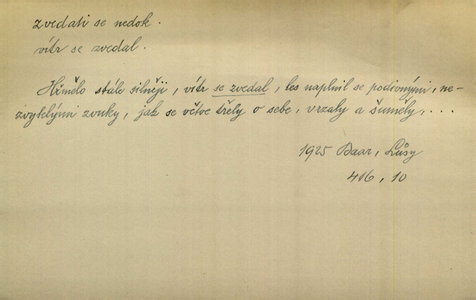 zvedati se nedok.
vítr se zvedal.
Hřmělo stále silněji, vítr se zvedal, les naplnil se podivnými, ne-
zvyklými zvuky, jak se větve třely o sebe, vrzaly a šuměly, ...
1925 Baar, Lůsy
416, 10